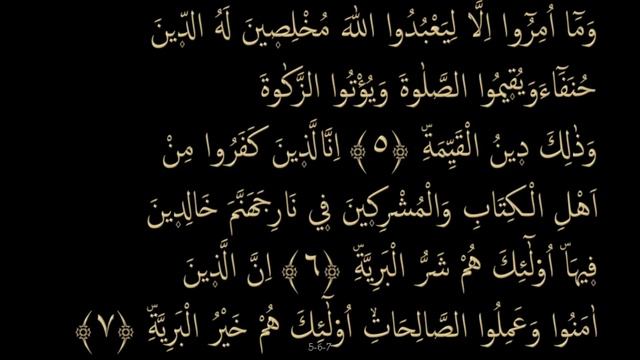 وَمَٓا اُمِرُٓوا اِلَّا لِيَعْبُدُوا اللّٰهَ مُخْلِصٖينَ لَهُ الدّٖينَ
حُنَفَٓاءَ وَيُقٖيمُوا الصَّلٰوةَ وَيُؤْتُوا الزَّكٰوةَ
وَذٰلِكَ دٖينُ الْقَيِّمَةِؕ ﴿٥﴾ اِنَّ الَّذٖينَ كَفَرُوا مِنْ
اَهْلِ الْكِتَابِ وَالْمُشْرِكٖينَ فٖي نَارِ جَهَنَّمَ خَالِدٖينَ
فٖيهَاؕ اُو۬لٰٓئِكَ هُمْ شَرُّ الْبَرِيَّةِؕ ﴿٦﴾ اِنَّ الَّذٖينَ
اٰمَنُوا وَعَمِلُوا الصَّالِحَاتِۙ اُو۬لٰٓئِكَ هُمْ خَيْرُ الْبَرِيَّةِؕ ﴿٧﴾
5-6-7